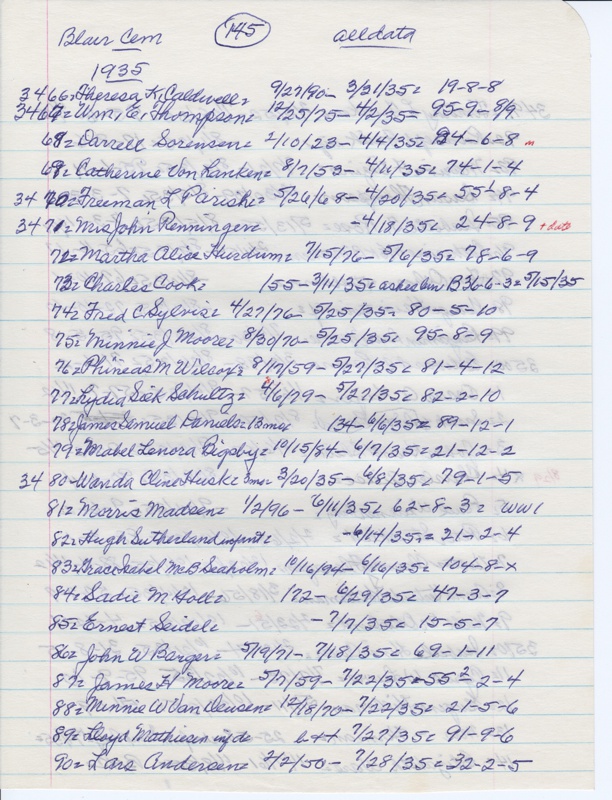 Blair Cem 145 alldata
1935
3466= Theresa K. Caldwell= 9/27/90- 3/31/35= 19-8-8
3467= Wm. E. Thompson= 12/25/75- 4/2/35= 95-9-8/9
68= Darrell Sorensen= 2/10/23- 4/4/35= 24-6-8
69= Catherine Von Ranken= 8/7/53- 4/11/35= 74-1-4
3470= Freeman L Parish= 5/26/68- 4/20/35= 55½-8-4
3471= Mrs John Renninger= -4/18/35= 24-8-9 + date
72= Martha Alice Hurdum= 7/15/76- 5/6/35= 78-6-9
73= Charles Cook= 155- 3/11/35= ashes bur B36-6-3= 5/15/35
74= Fred C Sylvis= 4/27/76- 5/25/35= 80-5-10
75= Minnie J Moore= 8/30/70- 5/25/35= 95-8-9
76= Phineas M Wilcox= 8/17/59- 5/27/35= 81-4-12
77= Lydia Sick Schultz= 4/6/79- 5/27/35= 82-2-10
78= James Semuel Daniels= 13mos 134- 6/6/35= 89-12-1
79= Mabel Lenora Bigsby= 10/15/84- 6/7/35= 21-12-2
3480- Wanda Cline Husk= 3mos 3/20/35- 6/8/35= 79-1-5
81= Morris Madsen= 1/2/96- 6/11/35= 62-8-3= WW1
82= Hugh Sutherland infant= -6/14/35= 21-2-4
83= Grace Isabel McB Seaholm= 10/16/94- 6/16/35= 104-8-x
84= Sadie M Holl= 172- 6/29/35= 47-3-7
85= Ernest Seidel= - 7/7/35= 15-5-7
86= John W Barger= 5/19/71- 7/18/35= 69-1-11
87= James H Moore= 5/7/59- 7/22/35= 55²-2-4
88= Minnie W Van Deusen= 12/18/70- 7/22/35= 21-5-6
89= Lloyd Mathiesen inf de b++ 7/27/35= 91-9-6
90= Lars Andersen= 2/2/50- 7/28/35= 32-2-5